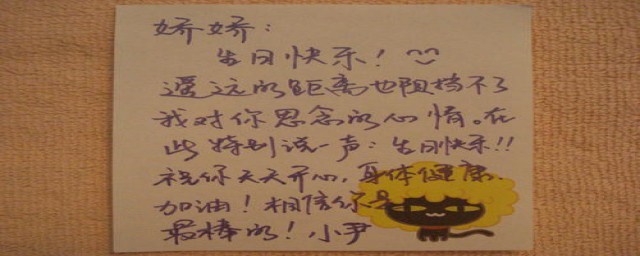 娇娇：
生日快乐！
遥远的距离也阻挡不了
我对你思念的心情。在
此特别说一声：生日快乐！！
祝你天天开心，身体健康，
加油！相信你是
最棒的！小尹